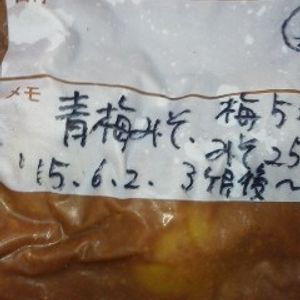 メモ
青梅みそ. 梅5
みそ25
'15.6.2. 3週後〜